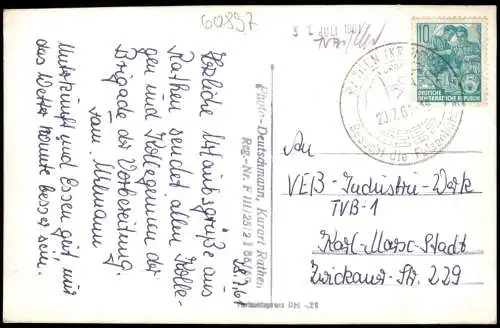 60897
3 1. JULI 1961
10
DEUTSCHE
DEMOKRATISCHE REPUBLIK
RATHEN (KR.
29.7.61
Besucht die Felsenbühne
28.7.61
Herzliche Urlaubsgrüße aus
Rathen sendet allen Kolle-
gen und Kolleginnen der
Brigade der Vorbereitung
Fam. Ullmann
Unterkunft und Essen gut nur
das Wetter könnte besser sein.
Photo-Deutschmann, Kurort Rathen
Reg.-Nr. F III/25/2
An
VEB-Industrie-Werk
TVB-1
Karl-Marx-Stadt
Zwickauer-Str. 229